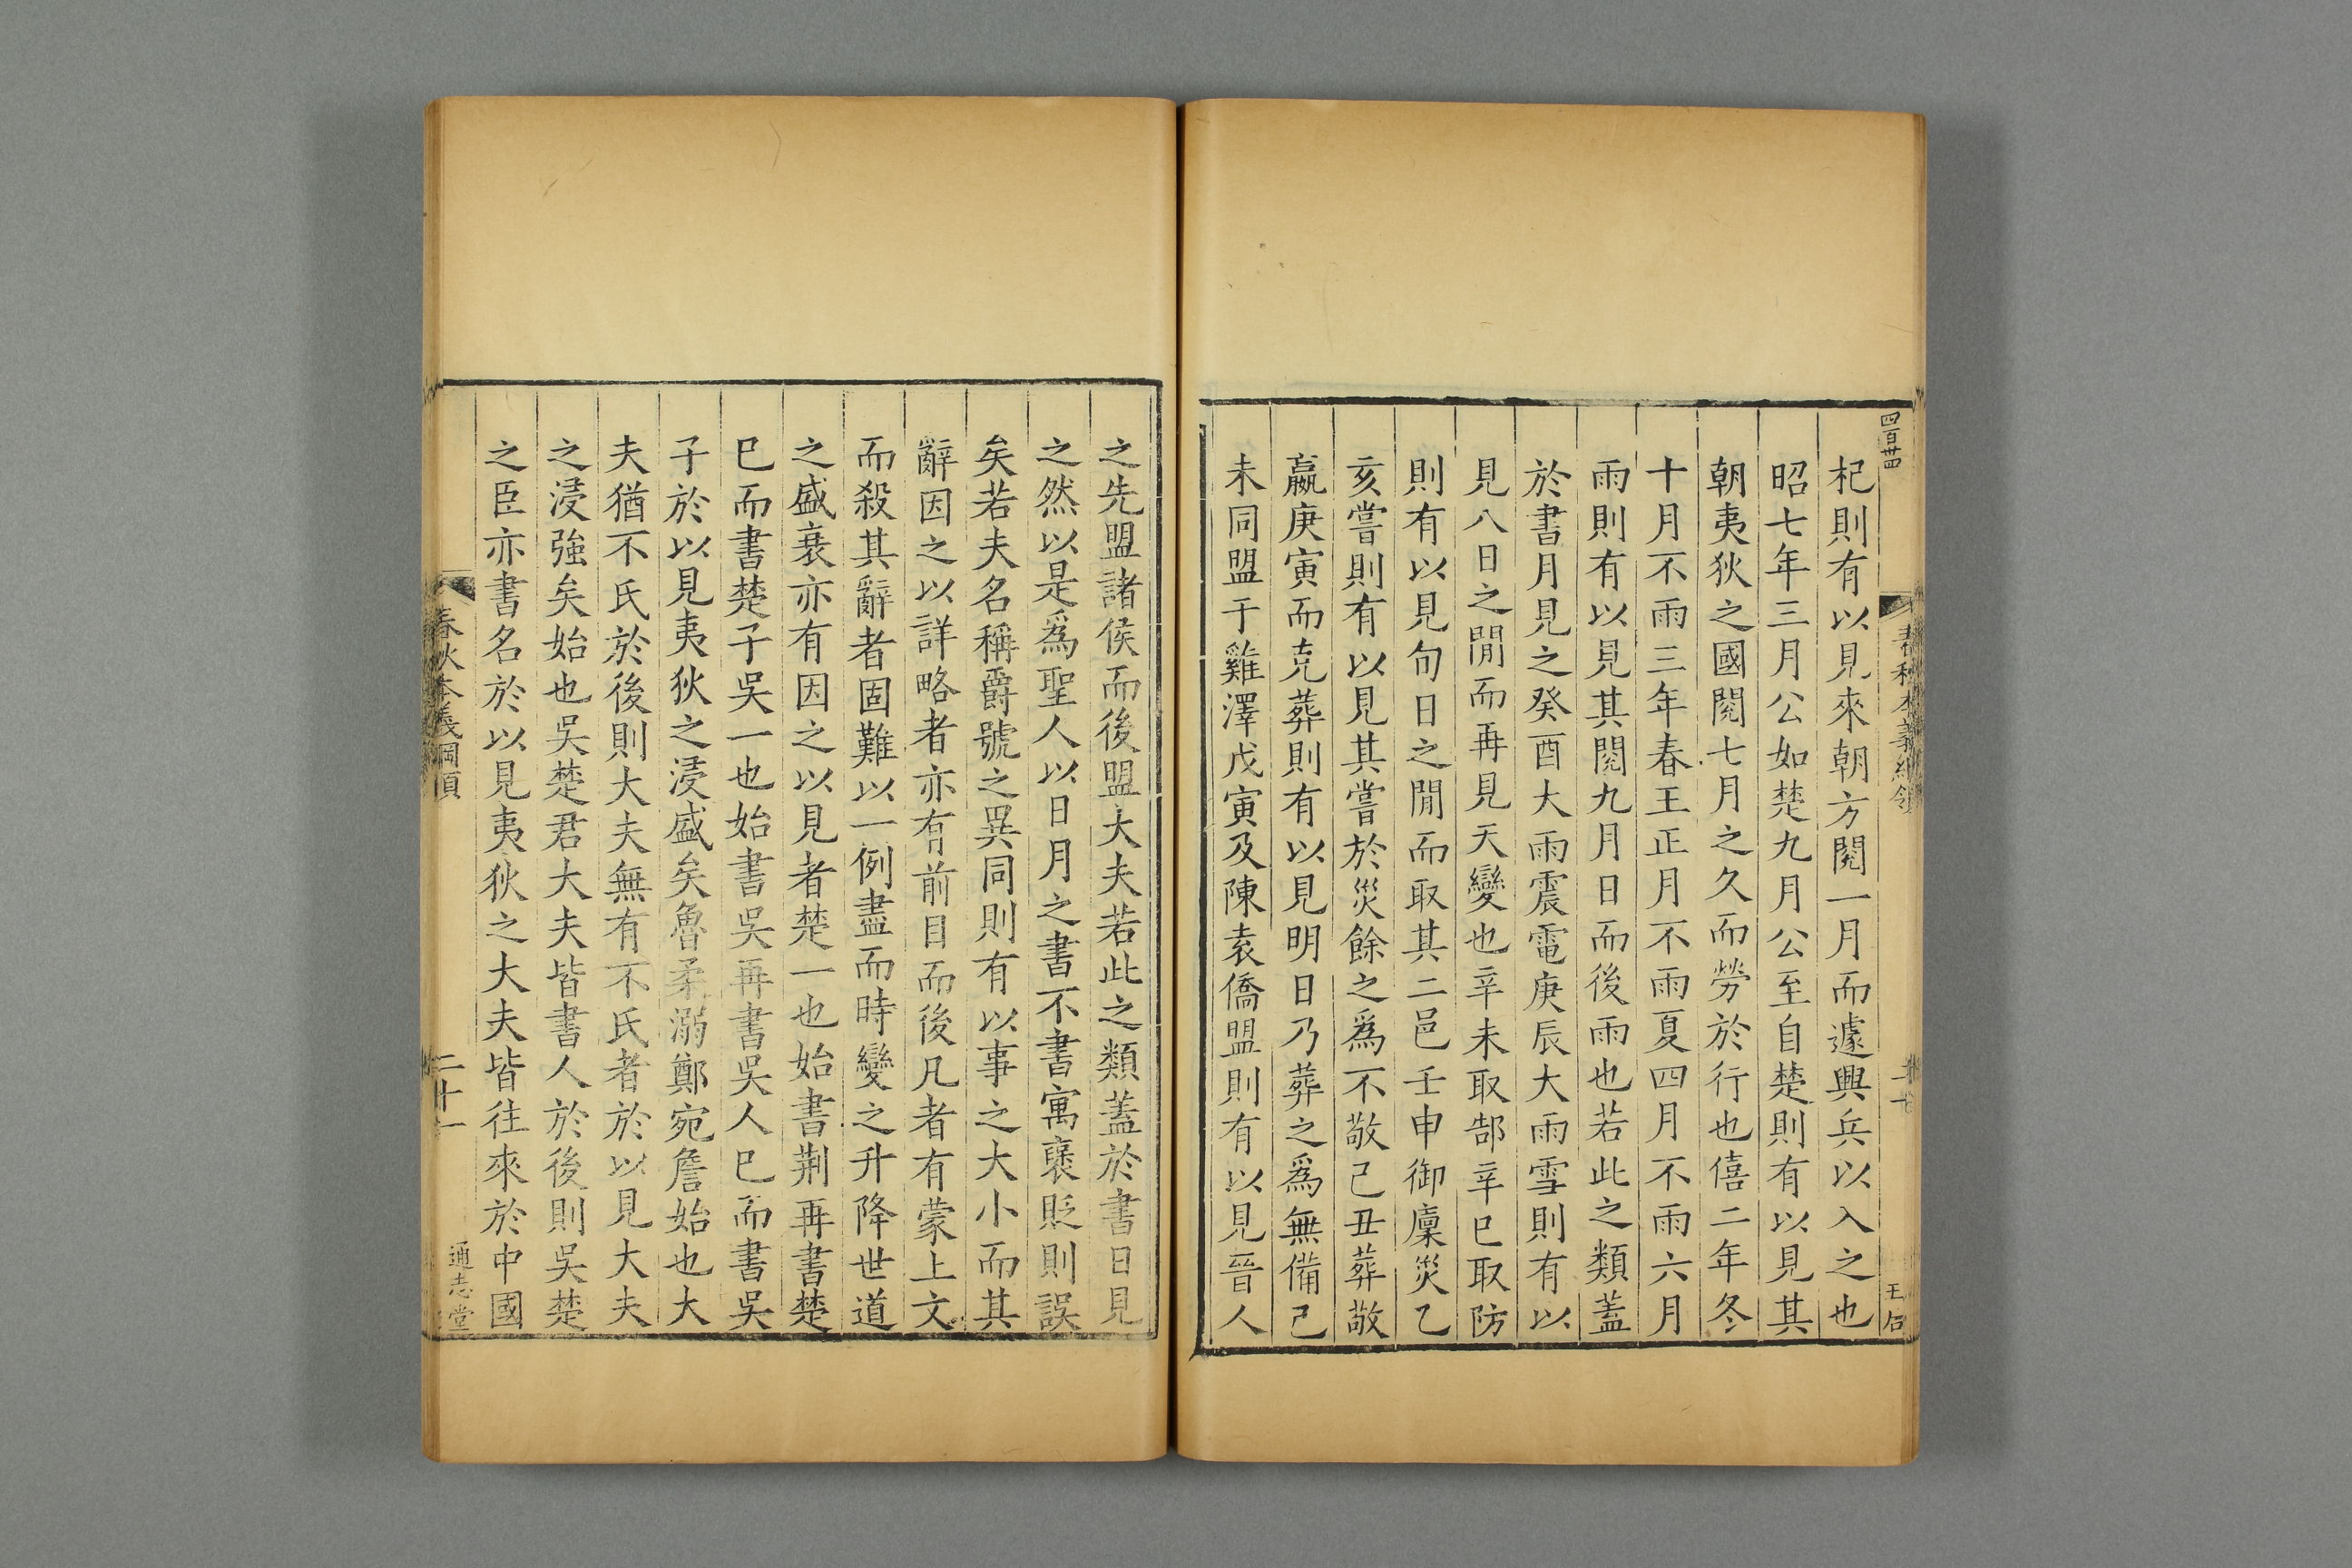 四百廿四
春秋本義綱領
二十
王召
杞則有以見來朝方閱一月而遽興兵以入之也
昭七年三月公如楚九月公至自楚則有以見其
朝夷狄之國閱七月之久而勞於行也僖二年冬
十月不雨三年春王正月不雨夏四月不雨六月
雨則有以見其閱九月日而後雨也若此之類蓋
於書月見之癸酉大雨震電庚辰大雨雪則有以
見八日之閒而再見天變也辛未取郜辛巳取防
則有以見旬日之閒而取其二邑壬申御廩災乙
亥嘗則有以見其嘗於災餘之爲不敬己丑葬敬
嬴庚寅而克葬則有以見明日乃葬之爲無備己
未同盟于雞澤戊寅及陳袁僑盟則有以見晉人
之先盟諸侯而後盟大夫若此之類蓋於書日見
之然以是爲聖人以日月之書不書寓褒貶則誤
矣若夫名稱爵號之異同則有以事之大小而其
辭因之以詳略者亦有前目而後凡者有蒙上文
而殺其辭者固難以一例盡而時變之升降世道
之盛衰亦有因之以見者楚一也始書荆再書楚
巳而書楚子吳一也始書吳再書吳人巳而書吳
子於以見夷狄之浸盛矣魯柔溺鄭宛詹始也大
夫猶不氏於後則大夫無有不氏者於以見大夫
之浸強矣始也吳楚君大夫皆書人於後則吳楚
之臣亦書名於以見夷狄之大夫皆往來於中國
春秋本義綱領
二十一
通志堂